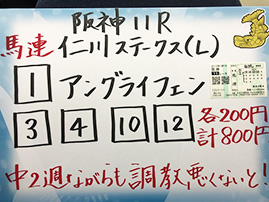 阪神11R
馬連 仁川ステークス(L)
1 アングライフェン
3 4 10 12 各200円
計800円
中2週ながらも調教悪くないと!